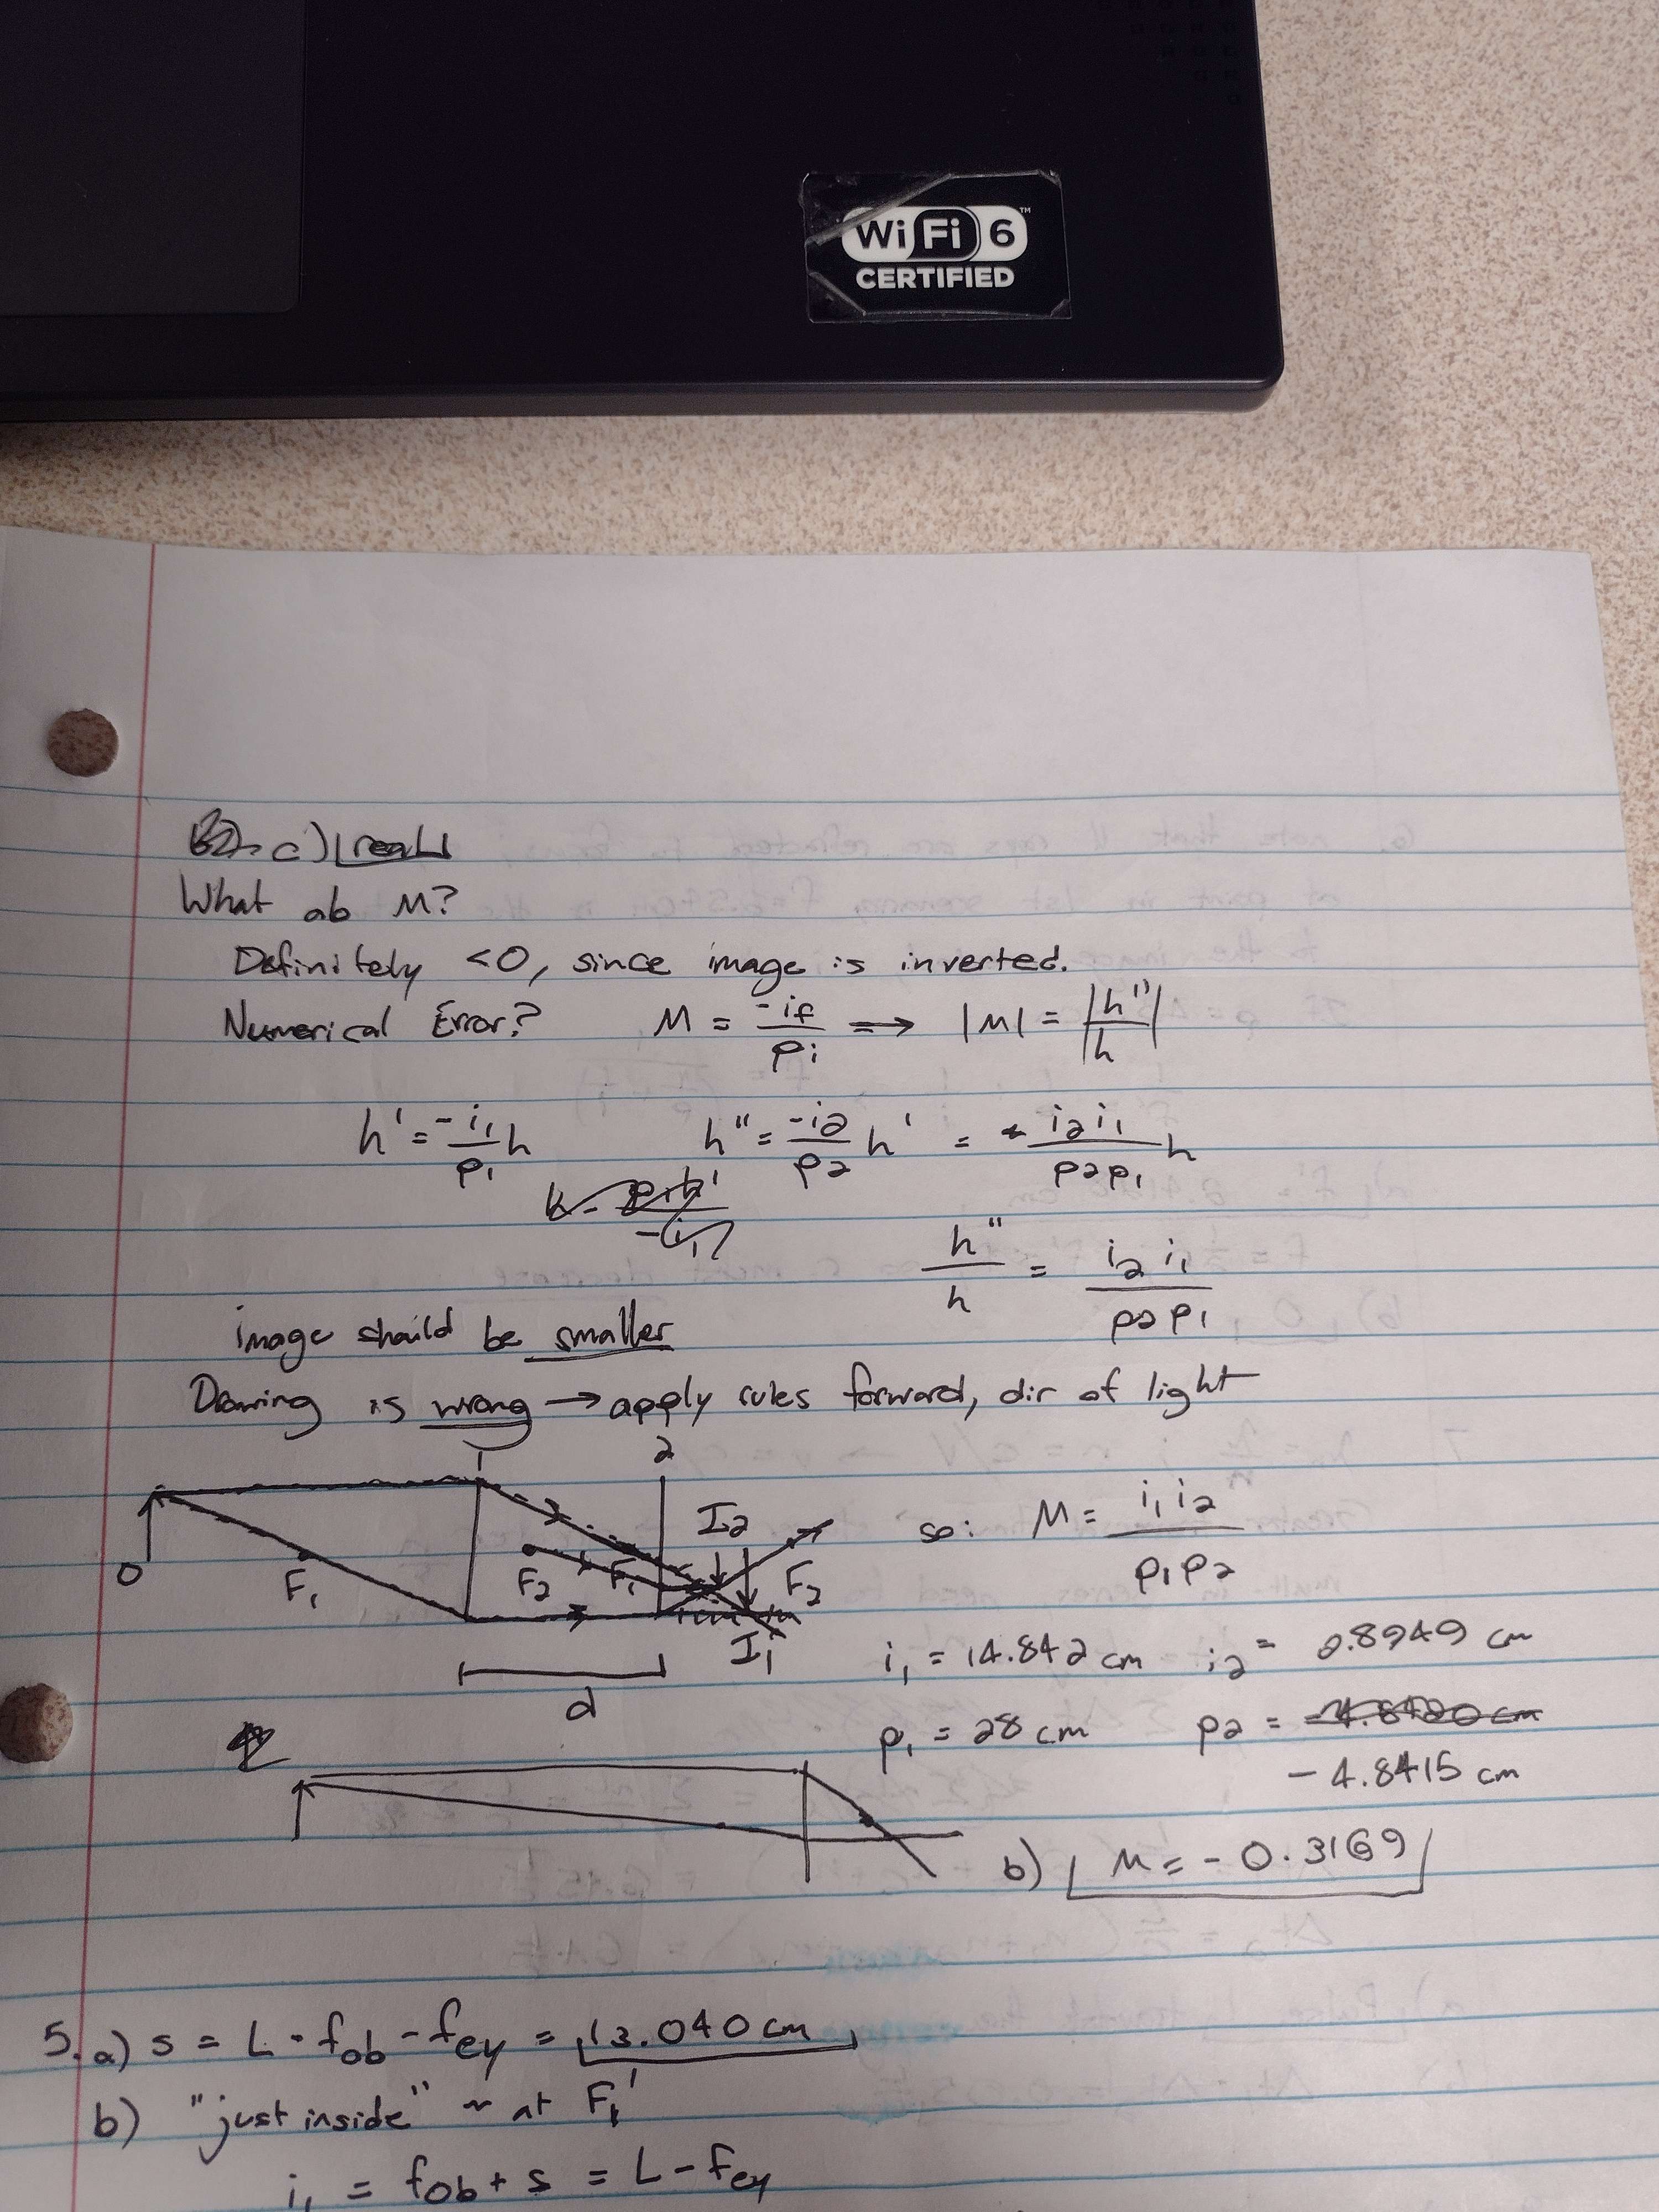 WiFi 6™
CERTIFIED
c) real
What ab M?
Definitely <0, since image is inverted.
Numerical Error? M = -if/pi ⟹ |M| = |h''/h|
h' = -i₁/p₁ h h'' = -i₂/p₂ h' = i₂i₁/p₂p₁ h
h''/h = i₂i₁/p₂p₁
image should be smaller
Drawing is wrong → apply rules forward, dir of light
1 2
I₂ so: M = i₁i₂/p₁p₂
O F₁ F₂ F₁ F₂
I₁ i₁ = 14.842 cm i₂ = 2.8949 cm
d
p₁ = 28 cm p₂ = -4.8420 cm
-4.8415 cm
b) M = -0.3169
5. a) s = L - fob - fey = 13.040 cm
b) "just inside" ~ at F₁'
i₁ = fob + s = L - fey